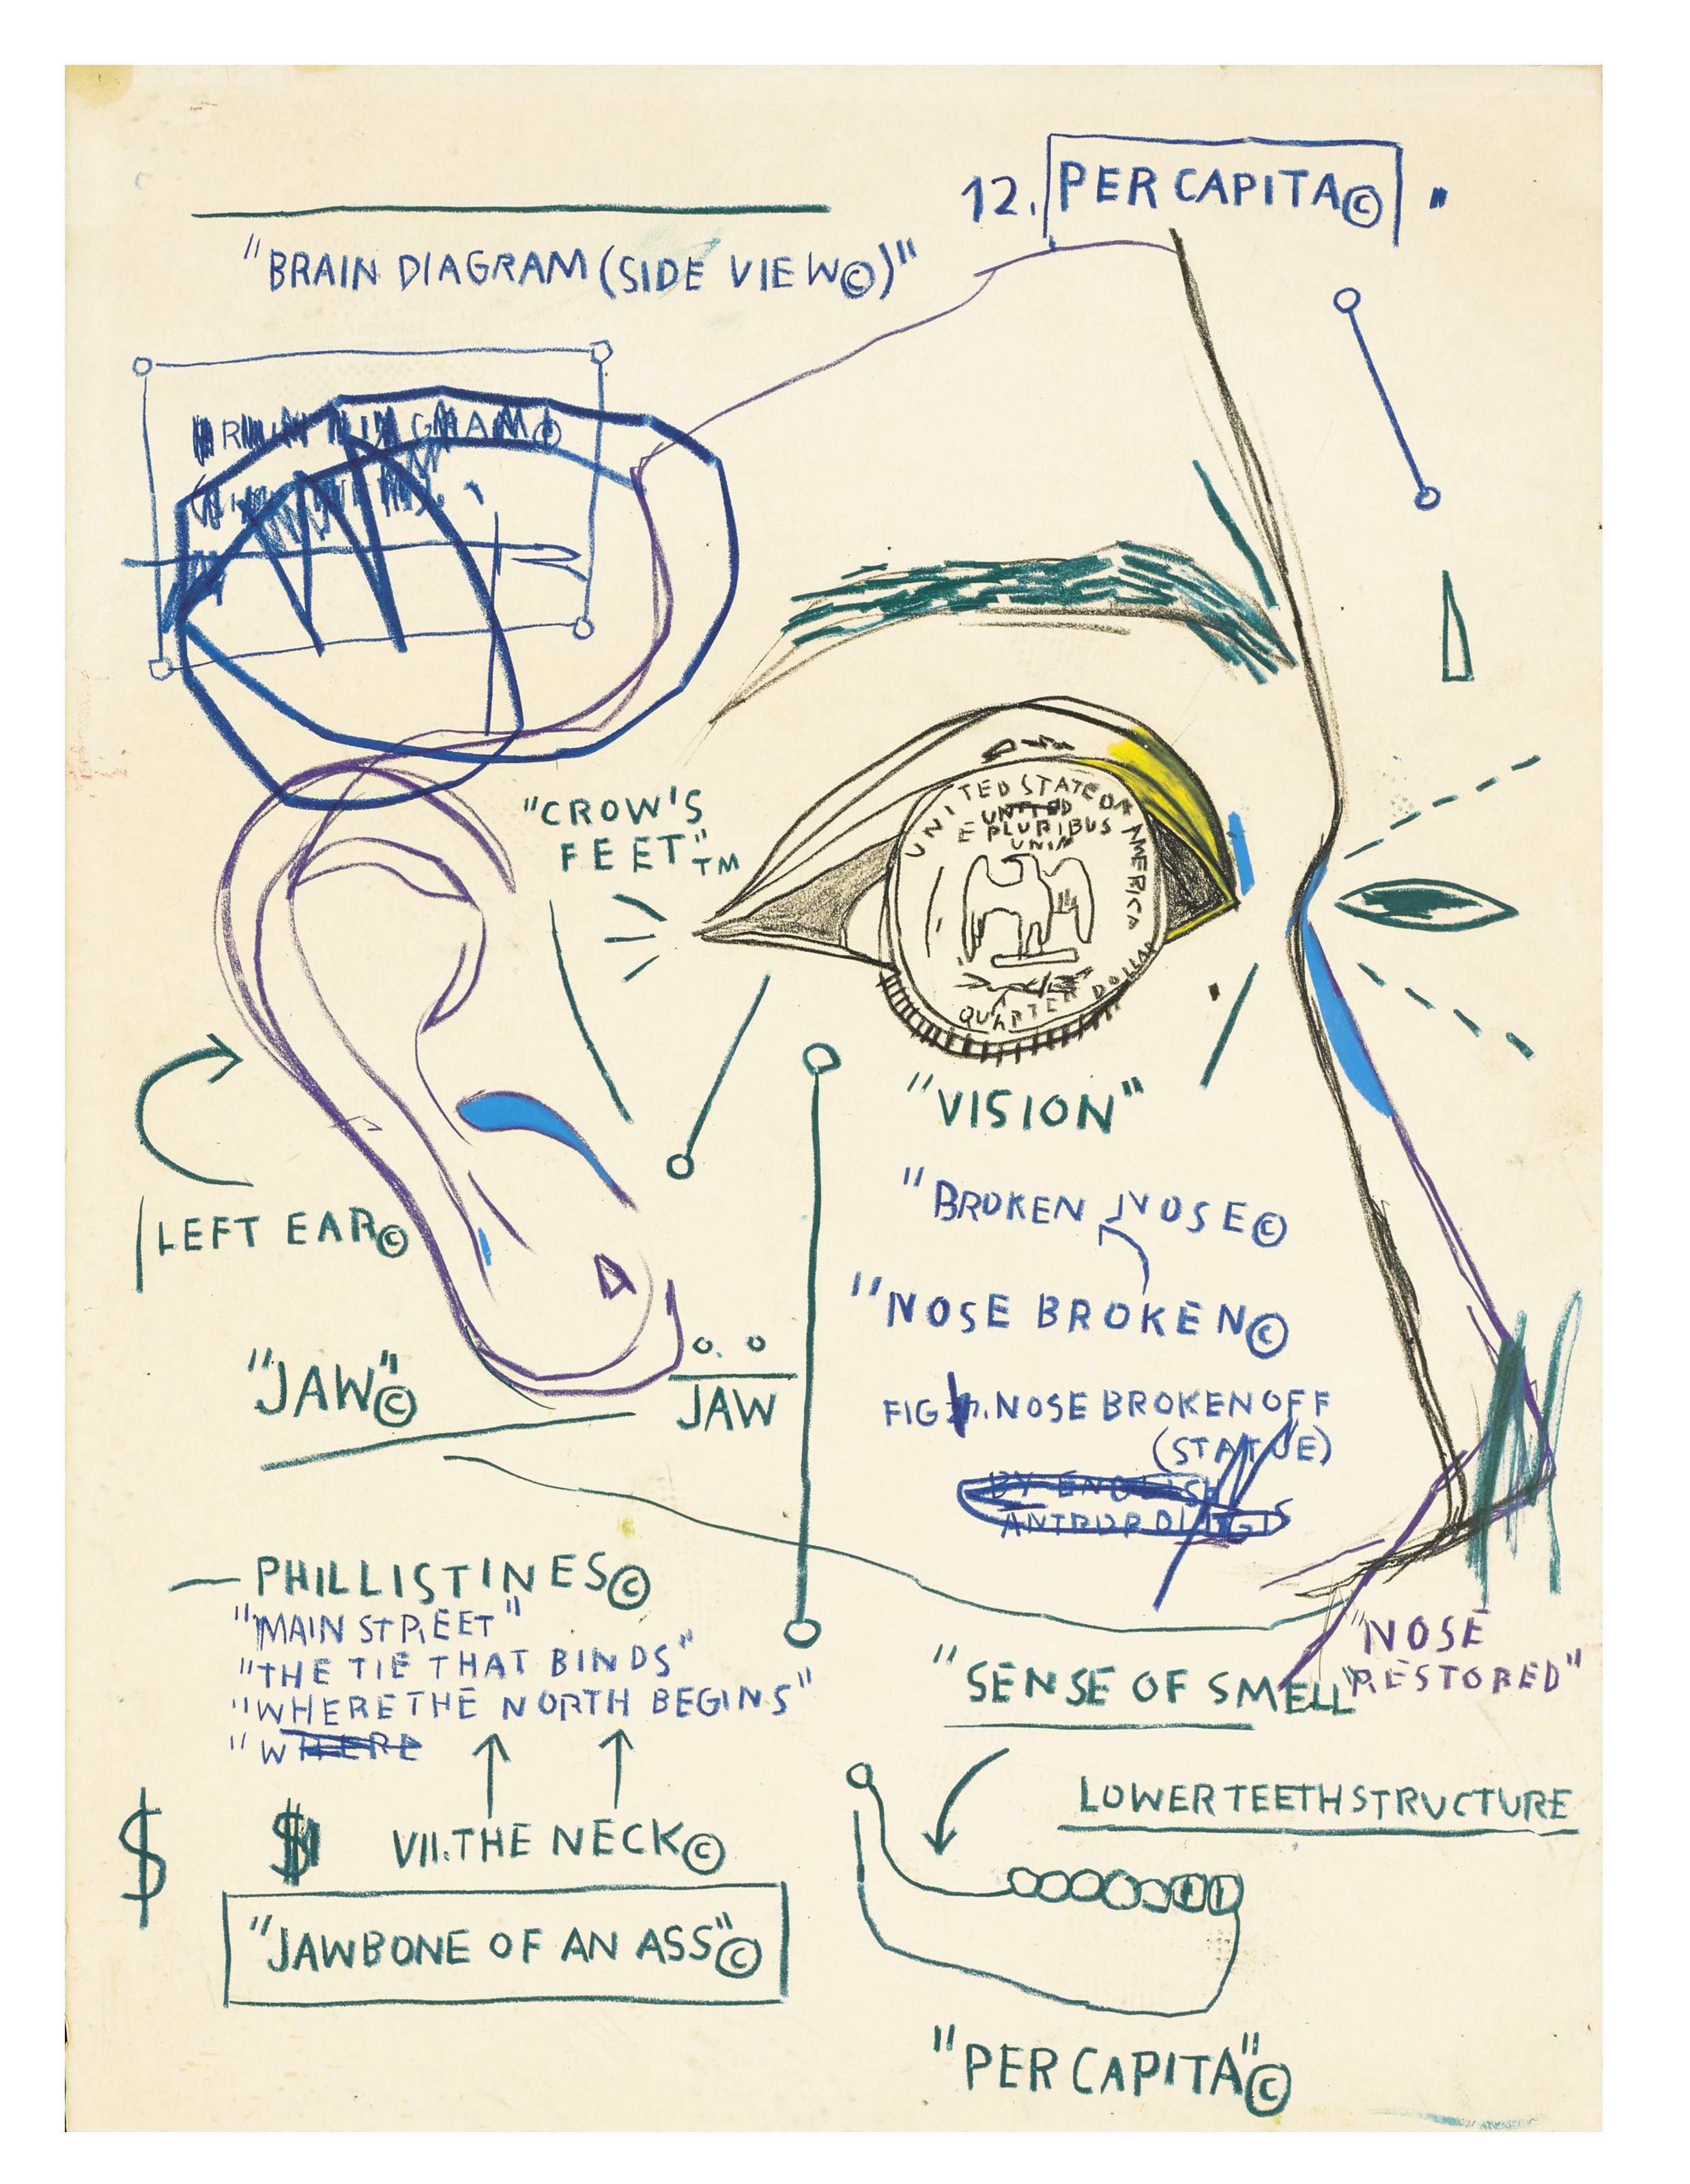 12. PER CAPITA©
"BRAIN DIAGRAM (SIDE VIEW©)"
"CROW'S
FEET"TM
UNITED STATE OF AMERICA
UNITED
E PLURIBUS
UNIM
QUARTER DOLLAR
"VISION"
"BROKEN NOSE©
"NOSE BROKEN©
FIG. NOSE BROKEN OFF
(STATUE)
BY ENGLISH
LEFT EAR©
"JAW"©
JAW
PHILLISTINES©
"MAIN STREET"
"THE TIE THAT BINDS"
"WHERE THE NORTH BEGINS"
"WHERE
"NOSE
RESTORED"
"SENSE OF SMELL"
LOWER TEETH STRUCTURE
$ $ VII. THE NECK©
"JAWBONE OF AN ASS"©
"PER CAPITA"©